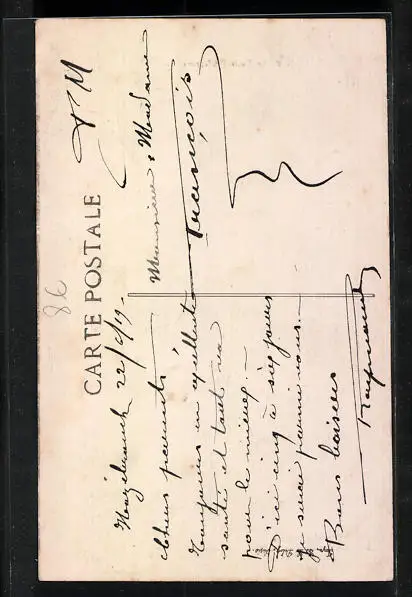 F M
CARTE POSTALE
86
Hazebrouck 22/5/19.
Chers parents
Toujours en excellente
santé et tout va
pour le mieux.
D'ici cinq à six jours
je serai parmi vous.
Bons baisers
Raymond
Monsieur & Madame
François